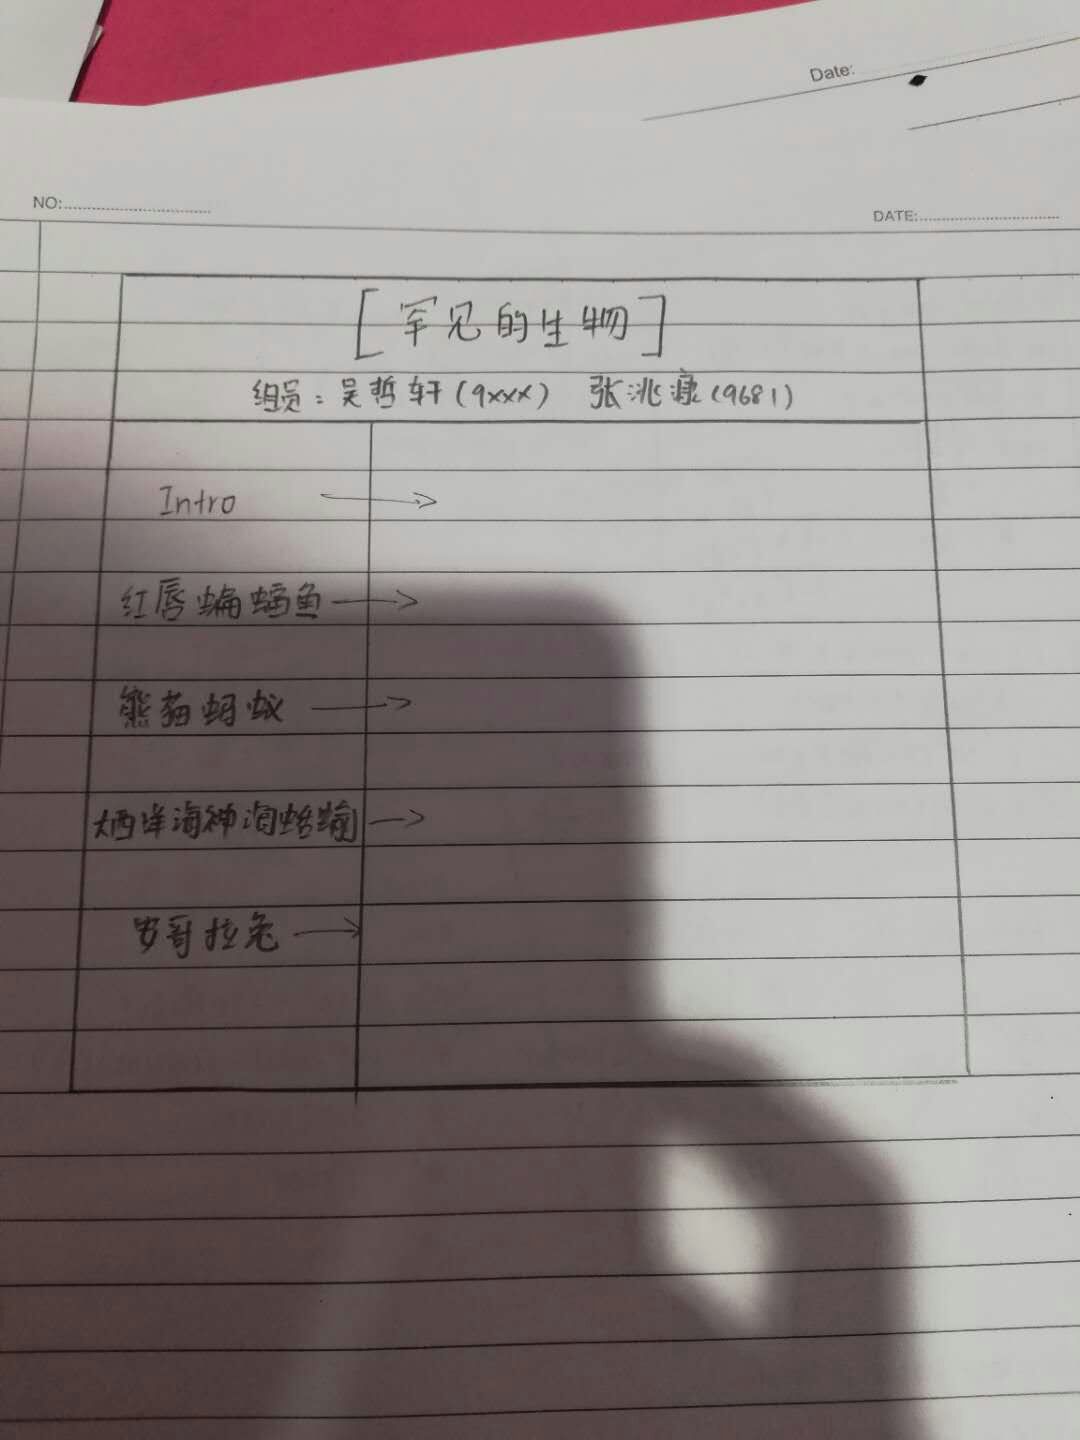 Date:
NO:
DATE:
[罕见的生物]
组员：吴哲轩(9xxx) 张洮溏(9681)
Intro →
红唇蝙蝠鱼 →
熊猫蚂蚁 →
大西洋海神海蛞蝓 →
安哥拉兔 →